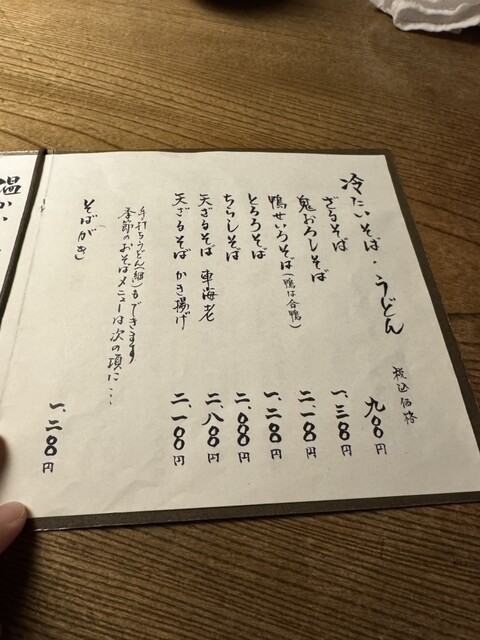 冷たいそば・うどん
税込価格
ざるそば 九〇〇円
鬼おろしそば 一、三〇〇円
鴨せいろそば（鴨は合鴨） 二、一〇〇円
とろろそば 一、二〇〇円
ちらしそば 二、〇〇〇円
天ざるそば 車海老 二、八〇〇円
天ざるそば かき揚げ 二、一〇〇円
手打ちうどん（細）もできます
季節のおそばメニューは次の項に…
そばがき 一、二〇〇円
温かい